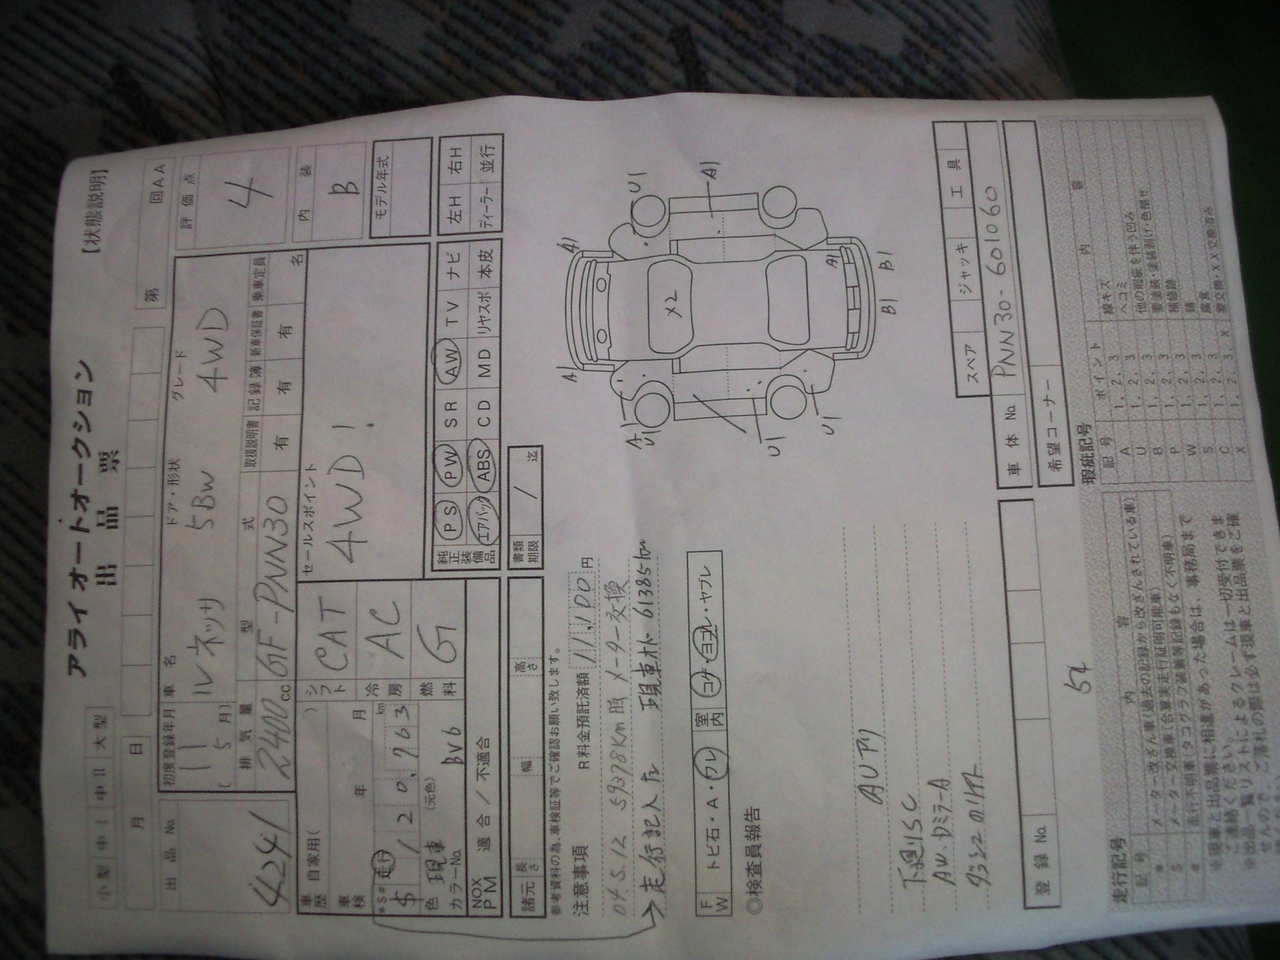 アライオートオークション
【状態説明】
出品票
小型 中Ⅰ 中Ⅱ 大型
月 日
第 回AA
出品No.
4241
初度登録年月
11
[5月]
車名
ルネッサ
ドア・形状
5BW
グレード
4WD
評価点
4
排気量
2400cc
型式
GF-PNN30
取扱説明書 記録簿 新車保証書 乗車定員
有 有 有 名
内装
B
車歴
自家用( )
シフト
CAT
セールスポイント
4WD!
モデル年式
車検
年 月
冷房
AC
*S# 走行
$ 120,763 km
燃料
G
色
現車
(元色)
カラーNo.
BV6
純正装備品
PS PW SR AW TV ナビ
エアバック ABS CD MD リヤスポ 本皮
左H 右H
ディーラー 並行
NOX PM
適合/不適合
諸元
長さ 幅 高さ
書類期限
/ 迄
参考資料の為、車検証等でご確認お願い致します。
注意事項
R料金預託済額 11,100円
04.5.12 59378km時 メーター交換
走行記入 現車オド 61385km
FW
トビ石・A・ワレ
室内
コゲ・ヨゴレ・ヤブレ
◎検査員報告
下廻りSC
A1
A1
A
U1
A1
U1
X2
U1
U1
A1
B1
B1
スペア ジャッキ 工具
車体No.
PNN30-601060
登録No.
希望コーナー
54
走行記号
記号 内容
* メーター改ざん車(過去の記録から改ざんされている車)
$ メーター交換車(合算実走行証明可能車)
# 走行不明車(タコグラフ装着等記録もなく不明車)
瑕疵記号
記号 ポイント 内容
A 1, 2, 3 線キズ
U 1, 2, 3 ヘコミ
B 1, 2, 3 他の瑕疵を伴う凹み
P 1, 2, 3 要塗装・塗装剥げ・色褪せ
W 1, 2, 3 補修跡
S 1, 2, 3 錆
C 1, 2, 3 腐食
X X 要交換・XX交換済み